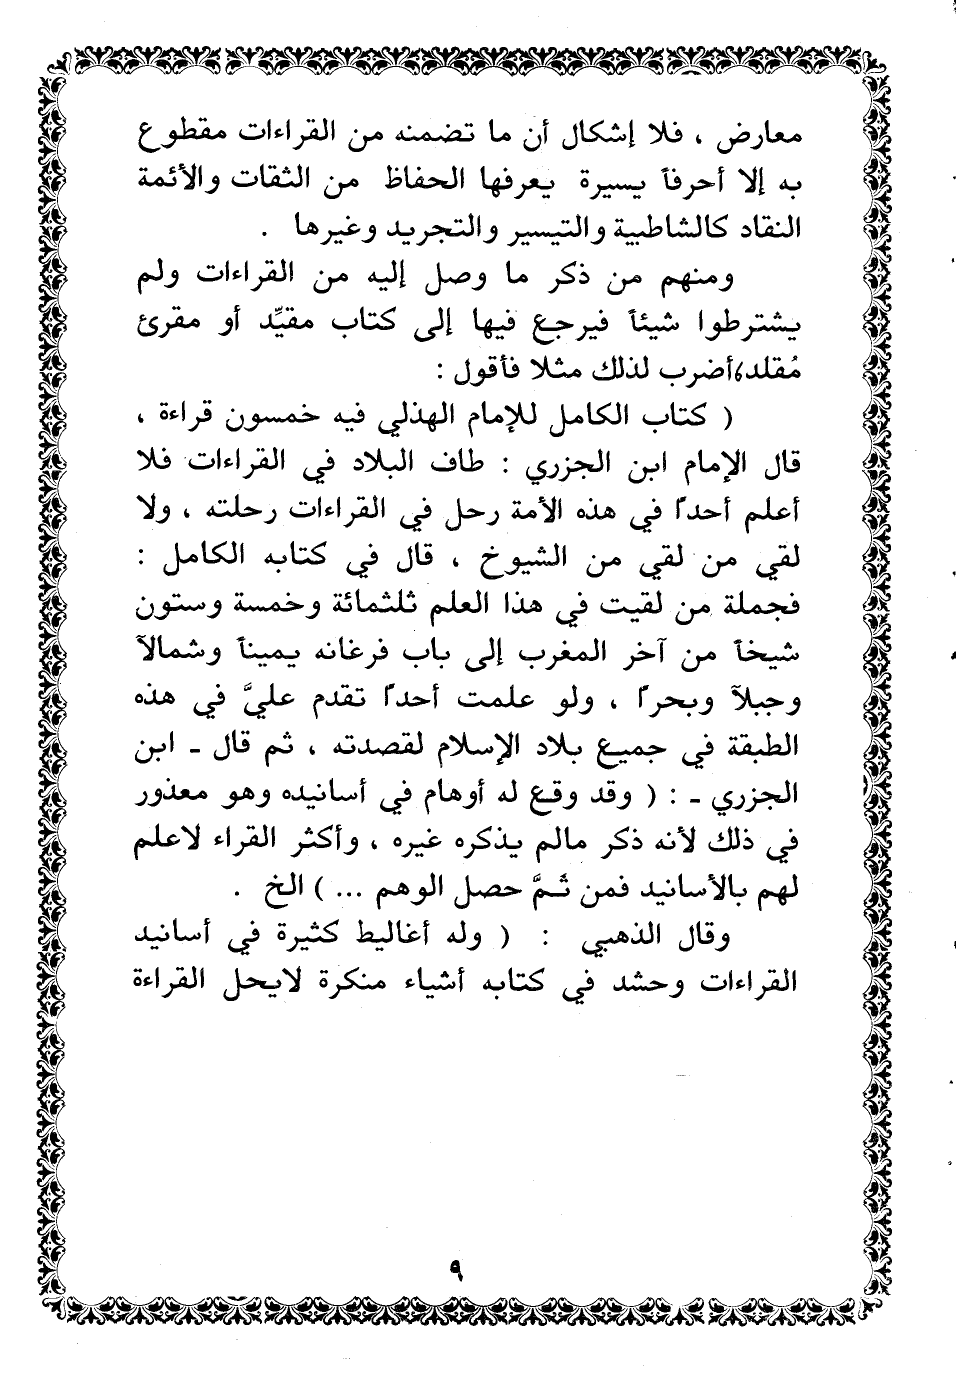 معارض ، فلا إشكال أن ما تضمنه من القراءات مقطوع
به إلا أحرفاً يسيرة يعرفها الحفاظ من الثقات والأئمة
النقاد كالشاطبية والتيسير والتجريد وغيرها .
ومنهم من ذكر ما وصل إليه من القراءات ولم
يشترطوا شيئاً فيرجع فيها إلى كتاب مقيِّد أو مقرئ
مُقلد،أضرب لذلك مثلا فأقول :
( كتاب الكامل للإمام الهذلي فيه خمسون قراءة ،
قال الإمام ابن الجزري : طاف البلاد في القراءات فلا
أعلم أحداً في هذه الأمة رحل في القراءات رحلته ، ولا
لقي من لقي من الشيوخ ، قال في كتابه الكامل :
فجملة من لقيت في هذا العلم ثلثمائة وخمسة وستون
شيخاً من آخر المغرب إلى باب فرغانه يميناً وشمالاً
وجبلاً وبحراً ، ولو علمت أحداً تقدم عليَّ في هذه
الطبقة في جميع بلاد الإسلام لقصدته ، ثم قال ـ ابن
الجزري ـ : ( وقد وقع له أوهام في أسانيده وهو معذور
في ذلك لأنه ذكر مالم يذكره غيره ، وأكثر القراء لاعلم
لهم بالأسانيد فمن ثَمَّ حصل الوهم ... ) الخ .
وقال الذهبي : ( وله أغاليط كثيرة في أسانيد
القراءات وحشد في كتابه أشياء منكرة لايحل القراءة
٩